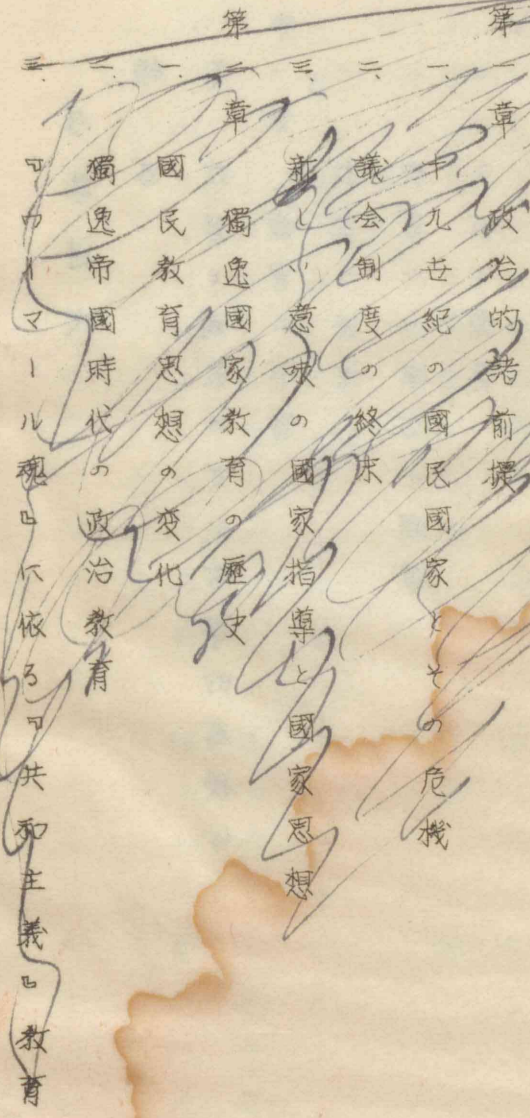 第一章 政治的諸前提
一、十九世紀の國民國家とその危機
二、議会制度の終末
三、新しい意味の國家指導と國家思想
第二章 獨逸國家教育の歴史
一、國民教育思想の変化
二、獨逸帝國時代の政治教育
三、『ワイマール魂』に依る『共和主義』教育